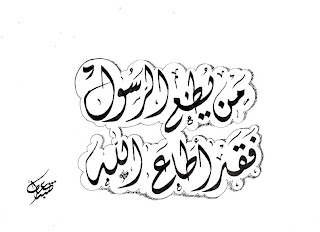 مَن يُطِعِ الرَّسُولَ
فَقَد اَطَاعَ اللّٰهَ